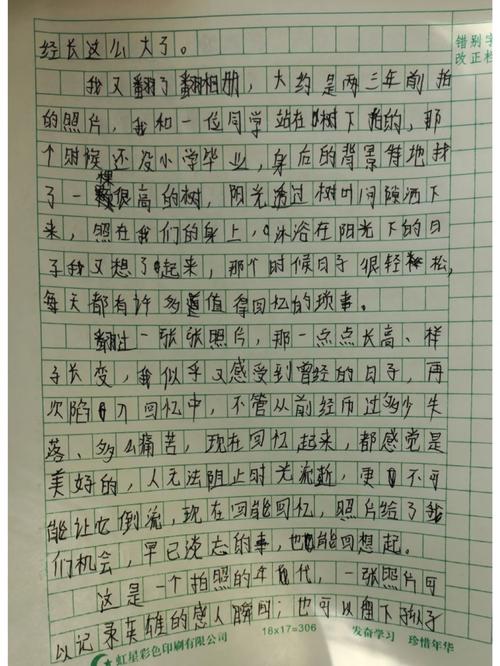 经长这么大了。
错别字
改正栏
我又翻了翻相册，大约是两三年前拍
的照片，我和一位同学站在树下拍的，那
个时候还没小学毕业，身后的背景特地找
了一棵很高的树，阳光透过树叶间隙洒下
来，照在我们的身上，沐浴在阳光下的日
子我又想了起来，那个时候日子很轻松，
每天都有许多值得回忆的琐事。
翻过一张张照片，那一点点长高、样
子长变，我似乎又感受到曾经的日子，再
次陷入回忆中，不管从前经历过多少失
落、多么痛苦，现在回忆起来，都感觉是
美好的，人无法阻止时光流逝，更不可
能让它倒流，现在回能回忆，照片给了我
们机会，早已淡忘的事，也能回想起。
这是一个拍照的年代，一张照片可
以记录英雄的感人瞬间；也可以
虹星彩色印刷有限公司
18x17=306
发奋学习 珍惜年华